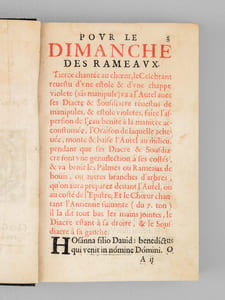 POVR LE
3
DIMANCHE
DES RAMEAVX.
Tierce chantée au chœur, le Celebrant
reuestu d'vne estole & d'vne chappe
violete (sās manipule) va à l'Autel auec
ses Diacre & Sousdiacre reuestus de
manipules, & estole violetes, faire l'as-
persion de l'eau benite à la maniere ac-
coustumée, l'Oraison de laquelle ache-
uée, monte & baise l'Autel au milieu,
pendant que ses Diacre & Sousdia-
cre font vne genuflection à ses costés,
& va benir les Palmes ou Rameaux de
bouis, ou autres branches d'arbres,
qu'on aura preparez deuant l'Autel, ou
au costé de l'Epistre, Et le Chœur chan-
tant l'Antienne suiuante (du 7. ton)
il la dit tout bas les mains jointes, le
Diacre estant à sa droite, & le Sous-
diacre à sa gauche.
HOsanna filio Dauid: benedictus
qui venit in nómine Dómini. O
A ij